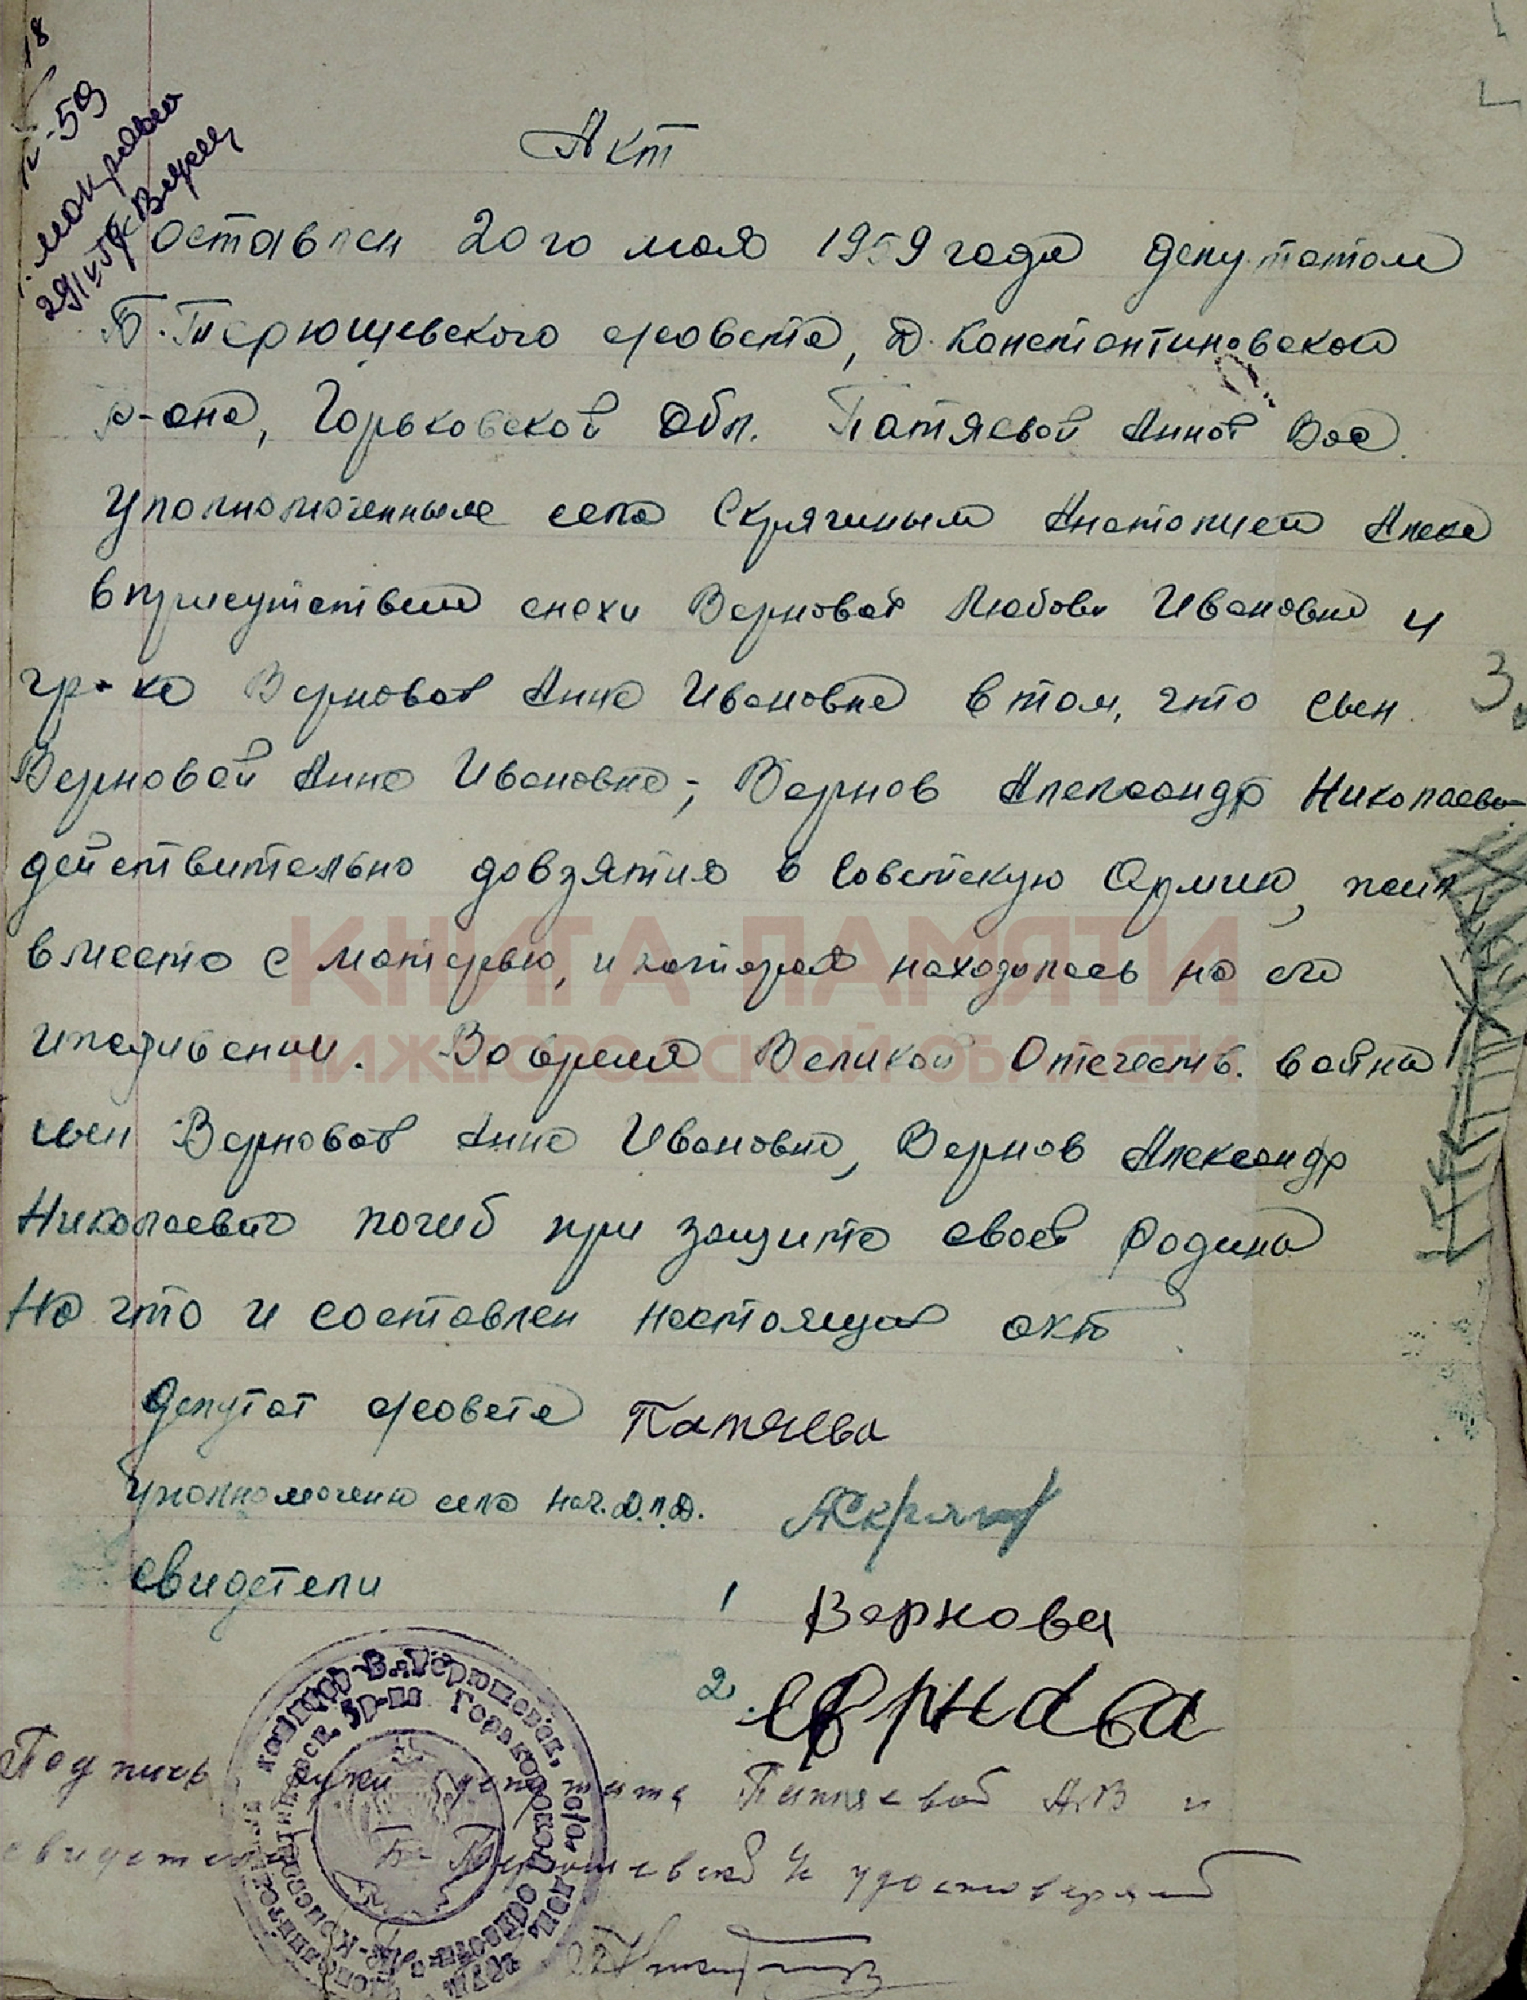 Акт
оставлен 20го мая 1959 года депутатом
Б. Терюшевского с/совета, Д. Константиновской
р-она, Горьковской Обл. Патяевой Анной Вас.
Уполномоченныме села Скрягиным Анатолием Алекс
в присутствии снохи Верновой Любовь Ивановна и
гр-ка Верновой Анна Ивановна в том, что сын
Верновой Анна Ивановна; Вернов Александр Николаеви
действительно до взятия в Советскую Армию, жил
вместе с матерью, и которая находилась на его
иждивении. Во время Великой Отечеств. война
сын Верновой Анна Ивановна, Вернов Александр
Николаевич погиб при защите своей Родина
На что и составлен настоящий акт
Депутат с/совета Патяева
Уполномочено села нач. Д.П.Д. АСкряг
свидетели
1 Вернова
2. Вернова
Подпись руки депутата Патяевой АВ и
свидетелей Б-Терюшевской с удостоверяет
КНИГА ПАМЯТИ
НИЖЕГОРОДСКОЙ ОБЛАСТИ